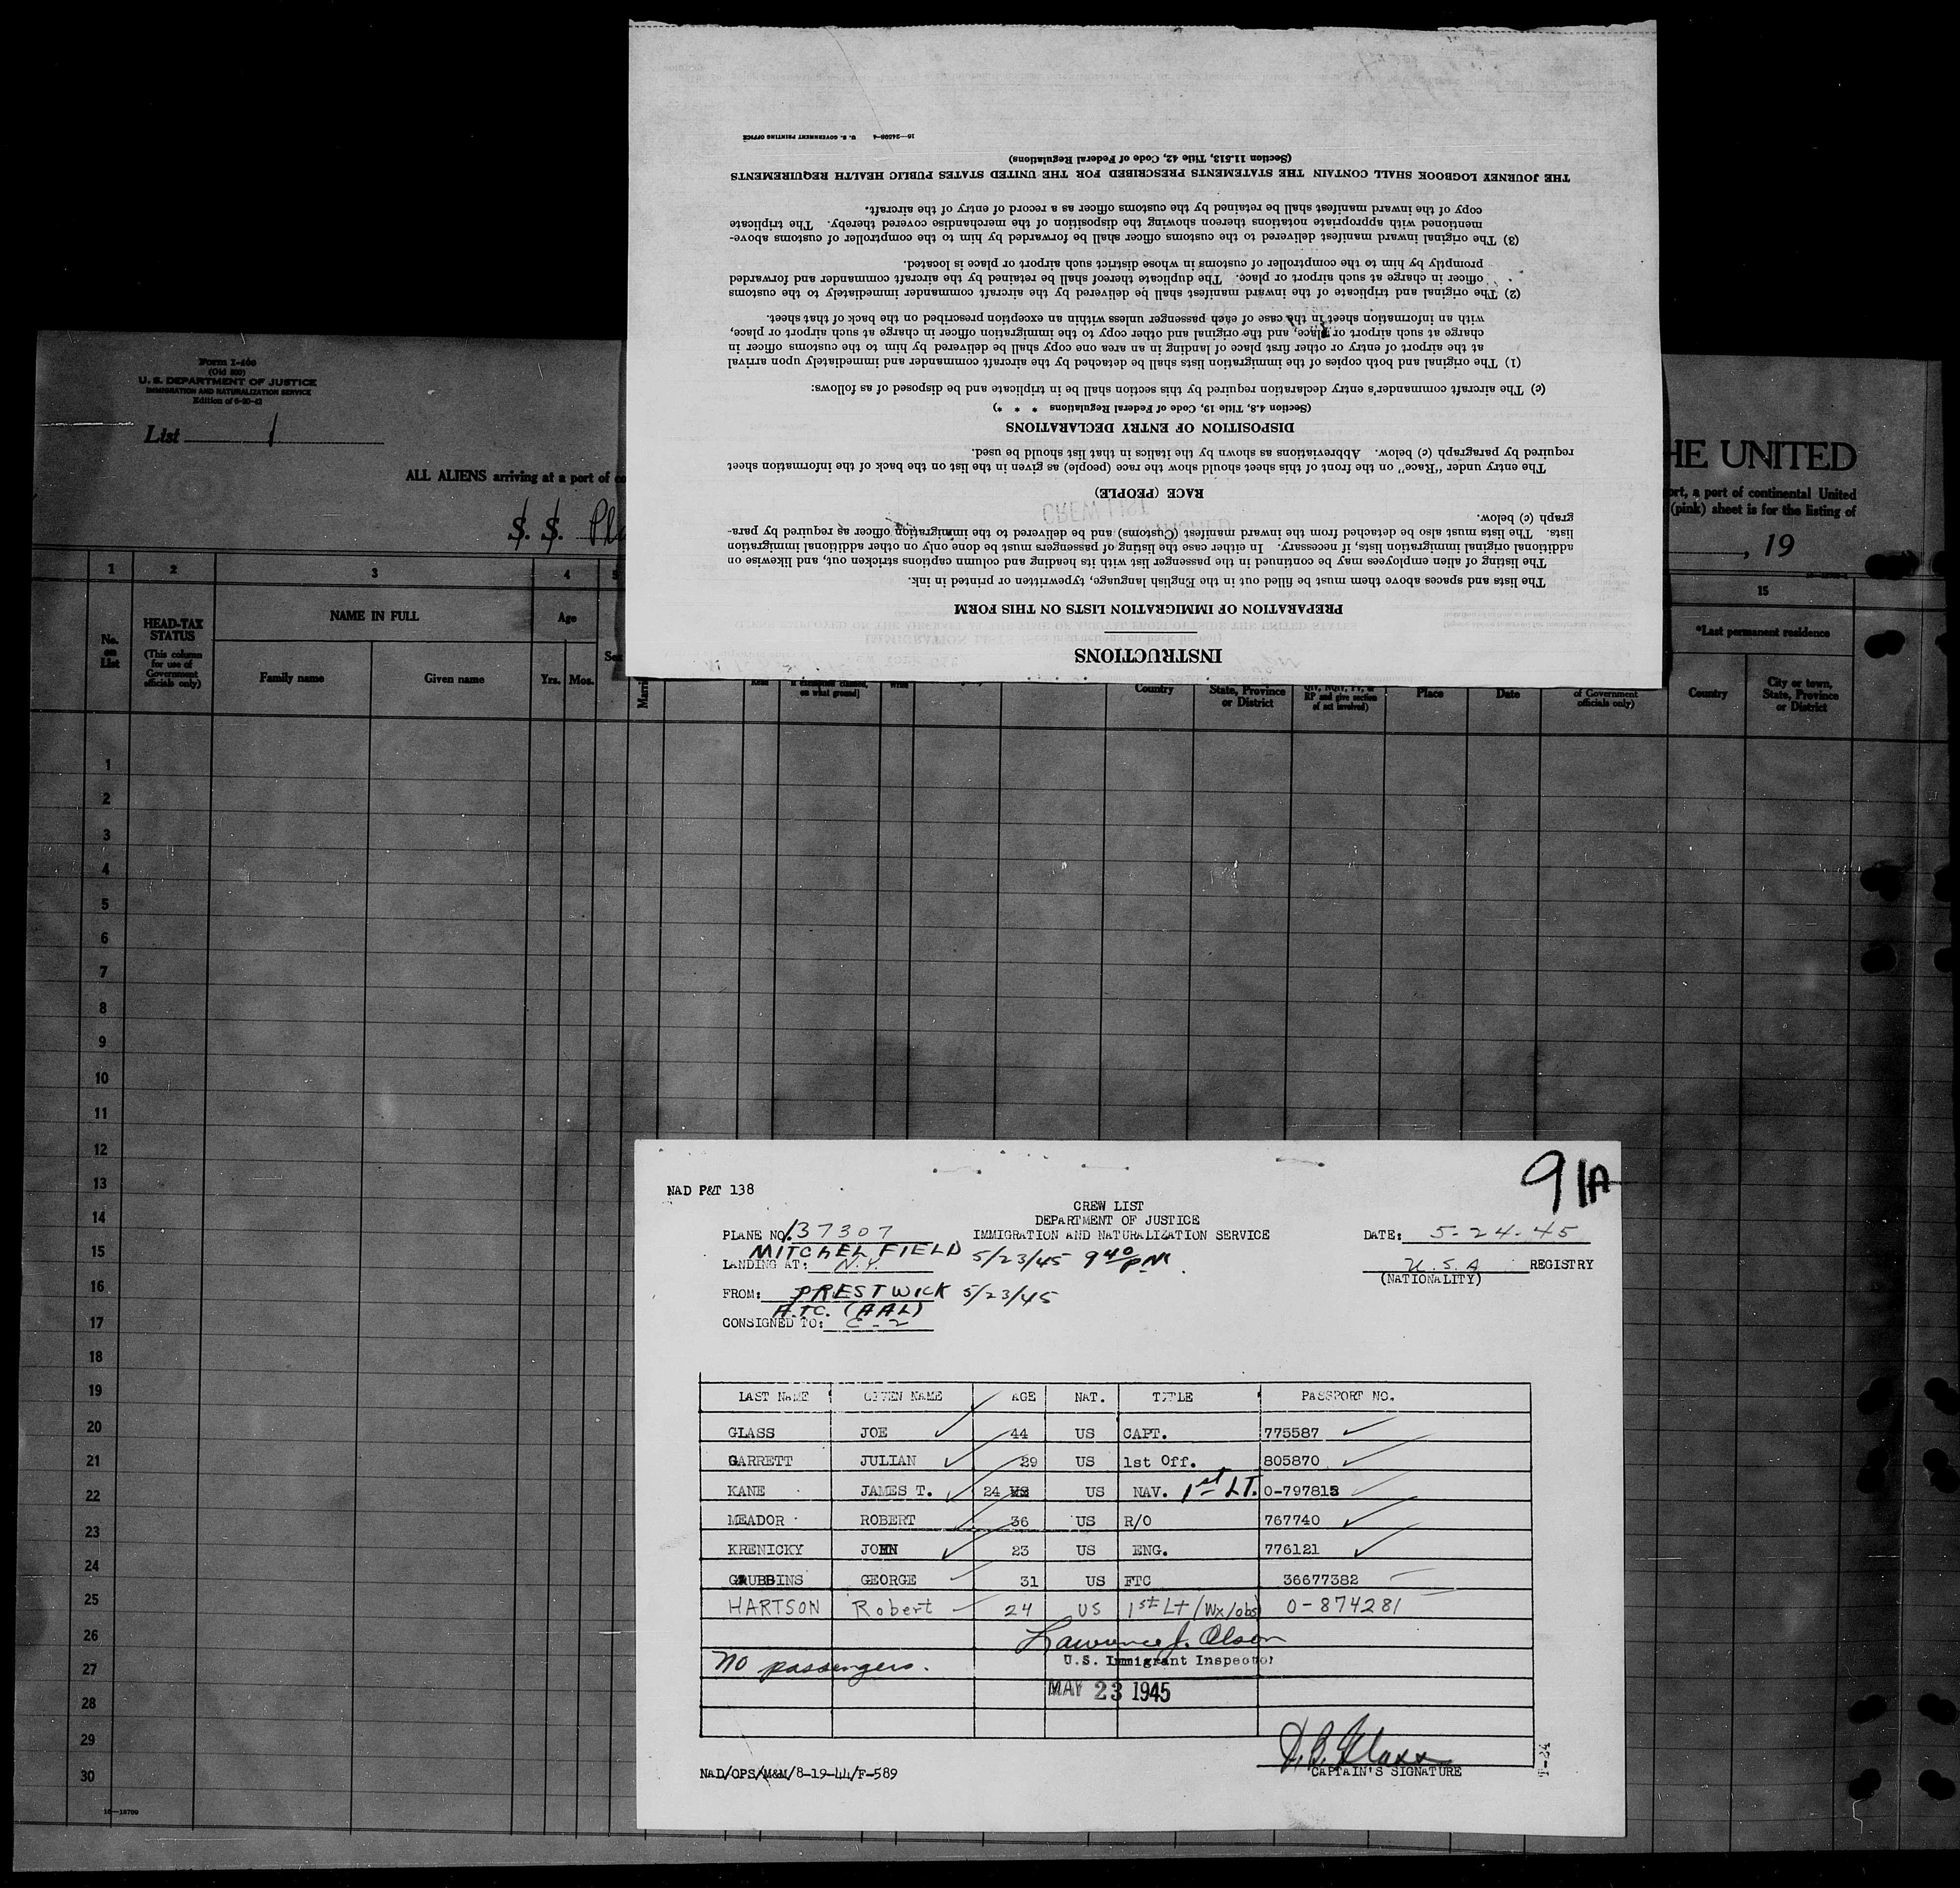 Form I-466
(Old 500)
U. S. DEPARTMENT OF JUSTICE
IMMIGRATION AND NATURALIZATION SERVICE
Edition of 6-20-42
List 1
ALL ALIENS arriving at a port of
S. S.
HE UNITED
ort, a port of continental United
(pink) sheet is for the listing of
, 19
1 2 3 4 15
No. on List
HEAD-TAX STATUS
(This column for use of Government officials only)
NAME IN FULL
Family name Given name
Age
Yrs. Mos.
Read
on what ground]
Write
Country
State, Province or District
RP and give section of act involved)
Place
Date
of Government officials only)
*Last permanent residence
Country
City or town, State, Province or District
1
2
3
4
5
6
7
8
9
10
11
12
13
14
15
16
17
18
19
20
21
22
23
24
25
26
27
28
29
30
16—13700
INSTRUCTIONS
PREPARATION OF IMMIGRATION LISTS ON THIS FORM
The lists and spaces above them must be filled out in the English language, typewritten or printed in ink.
The listing of alien employees may be continued in the passenger list with its heading and column captions stricken out, and likewise on
additional original immigration lists, if necessary. In either case the listing of passengers must be done only on other additional immigration
lists. The lists must also be detached from the inward manifest (Customs) and be delivered to the immigration officer as required by para-
graph (c) below.
RACE (PEOPLE)
The entry under "Race" on the front of this sheet should show the race (people) as given in the list on the back of the information sheet
required by paragraph (c) below. Abbreviations as shown by the italics in that list should be used.
DISPOSITION OF ENTRY DECLARATIONS
(Section 4.8, Title 19, Code of Federal Regulations * * *)
(c) The aircraft commander's entry declaration required by this section shall be in triplicate and be disposed of as follows:
(1) The original and both copies of the immigration lists shall be detached by the aircraft commander and immediately upon arrival
at the airport of entry or other first place of landing in an area one copy shall be delivered by him to the customs officer in
charge at such airport or place, and the original and other copy to the immigration officer in charge at such airport or place,
with an information sheet in the case of each passenger unless within an exception prescribed on the back of that sheet.
(2) The original and triplicate of the inward manifest shall be delivered by the aircraft commander immediately to the customs
officer in charge at such airport or place. The duplicate thereof shall be retained by the aircraft commander and forwarded
promptly by him to the comptroller of customs in whose district such airport or place is located.
(3) The original inward manifest delivered to the customs officer shall be forwarded by him to the comptroller of customs above-
mentioned with appropriate notations thereon showing the disposition of the merchandise covered thereby. The triplicate
copy of the inward manifest shall be retained by the customs officer as a record of entry of the aircraft.
THE JOURNEY LOGBOOK SHALL CONTAIN THE STATEMENTS PRESCRIBED FOR THE UNITED STATES PUBLIC HEALTH REQUIREMENTS
(Section 11.513, Title 42, Code of Federal Regulations)
16—24598-4 U. S. GOVERNMENT PRINTING OFFICE
91A
NAD P&T 138
CREW LIST
DEPARTMENT OF JUSTICE
PLANE NO. 137307 IMMIGRATION AND NATURALIZATION SERVICE DATE: 5-24-45
MITCHEL FIELD 5/23/45 9 40 PM
LANDING AT: N.Y. U.S.A REGISTRY
(NATIONALITY)
FROM: PRESTWICK 5/23/45
A.T.C. (AAL)
CONSIGNED TO: C-2
LAST NAME GIVEN NAME AGE NAT. TITLE PASSPORT NO.
GLASS JOE 44 US CAPT. 775587
GARRETT JULIAN 29 US 1st Off. 805870
KANE JAMES T. 24 US NAV. 1st LT. 0-797813
MEADOR ROBERT 36 US R/O 767740
KRENICKY JOHN 23 US ENG. 776121
GRUBBINS GEORGE 31 US FTC 36677382
HARTSON Robert 24 US 1st Lt (Wx/obs) 0-874281
Lawrence J. Olson
No passengers. U.S. Immigrant Inspector
MAY 23 1945
CAPTAIN'S SIGNATURE
NAD/OPS/M&M/8-19-44/F-589